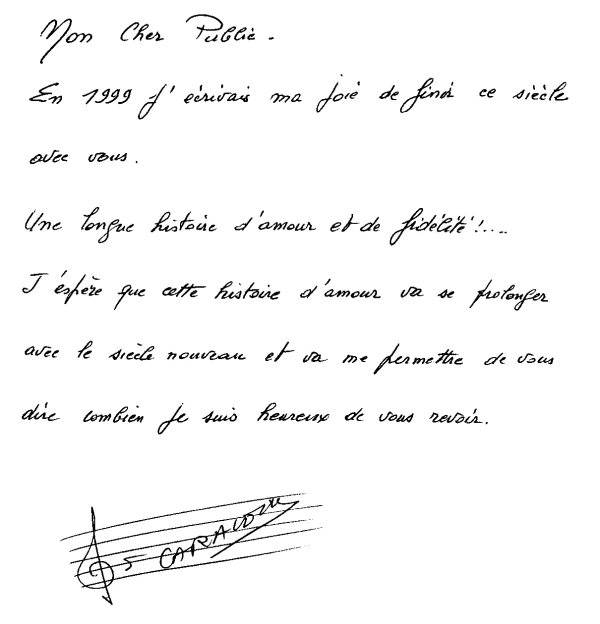 Mon Cher Public.
En 1999 J'écrivais ma joie de finir ce siècle
avec vous.
Une longue histoire d'amour et de fidélité!....
J'éspère que cette histoire d'amour va se prolonger
avec le siècle nouveau et va me permettre de vous
dire combien je suis heureux de vous revoir.